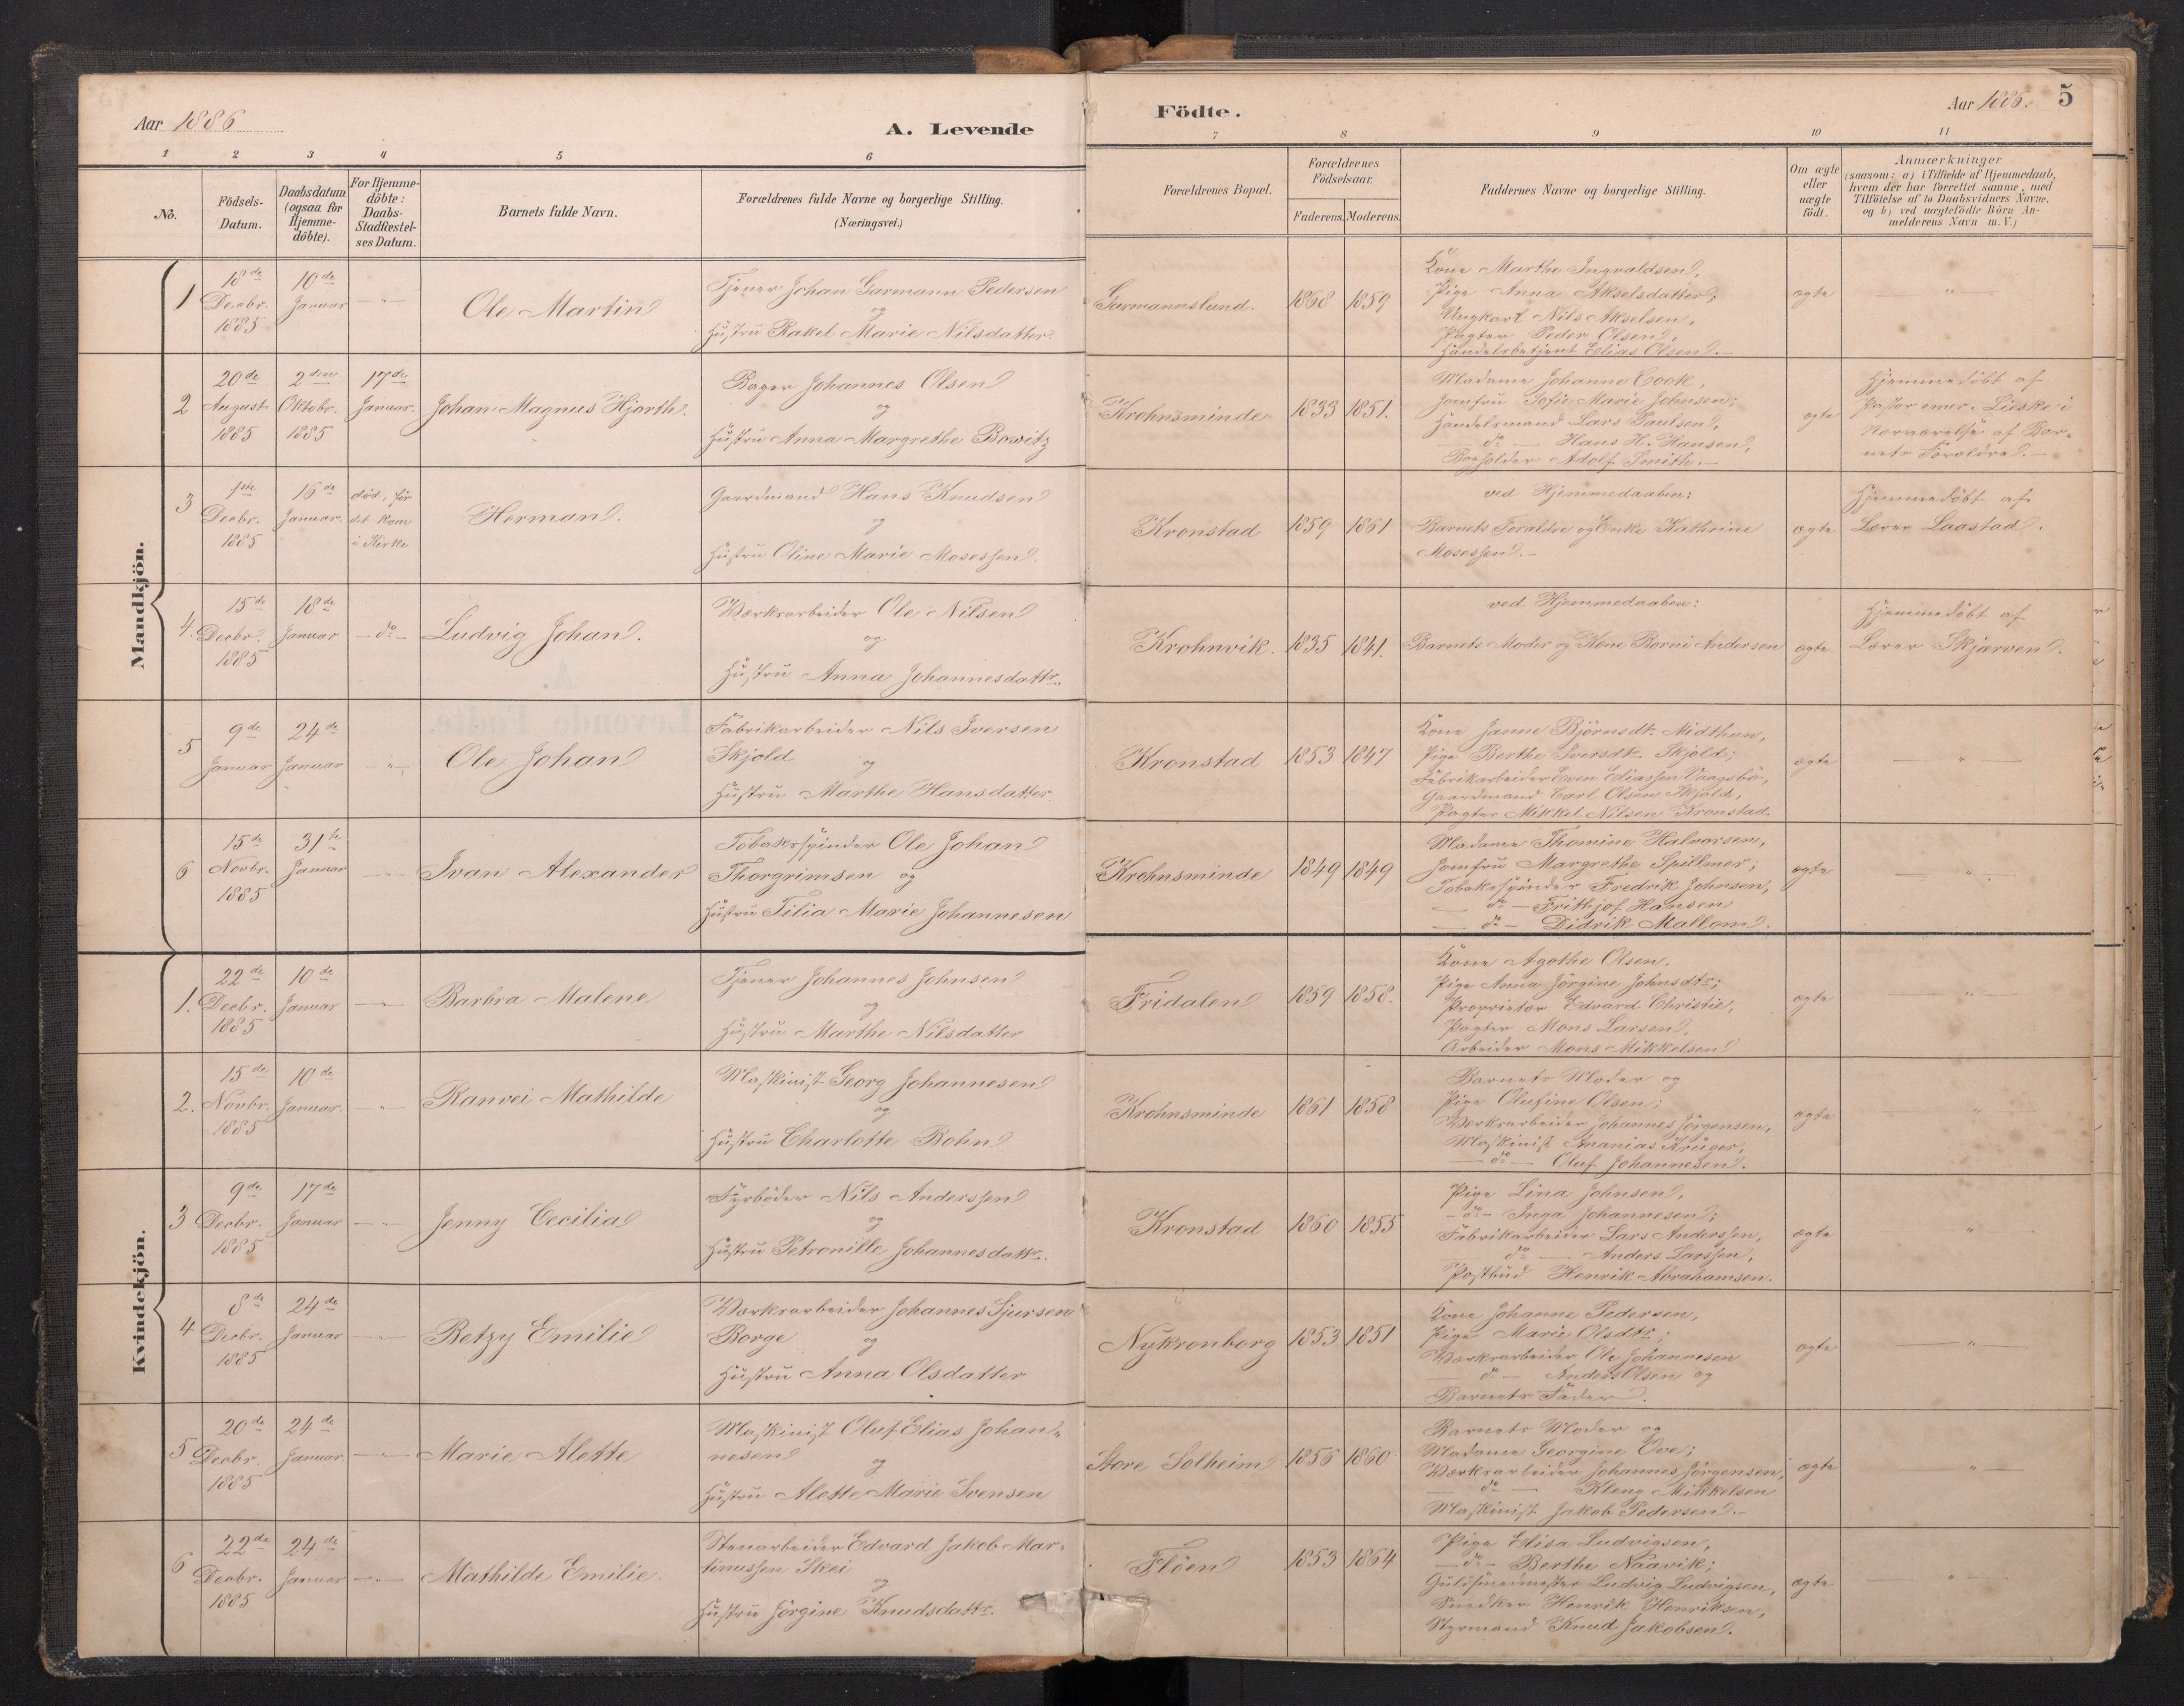 Aar 1886
A. Levende
Födte.
Aar 1886.
5
1 2 3 4 5 6 7 8 9 10 11
No.
Födsels-Datum.
Daabsdatum (ogsaa for Hjemme-döbte).
For Hjemme-döbte: Daabs-Stadfæstel-ses Datum.
Barnets fulde Navn.
Forældrenes fulde Navne og borgerlige Stilling.
(Næringsvei.)
Forældrenes Bopæl.
Forældrenes Födselsaar.
Faderens. Moderens.
Faddernes Navne og borgerlige Stilling.
Om ægte eller uægte födt.
Anmærkninger
(saasom: a) i Tilfælde af Hjemmedaab, hvem der har forrettet samme, med Tilföielse af to Daabsvidners Navne, og b) ved uægtefödte Börn An-melderens Navn m. V.)
Mandkjön.
1
18de Decbr. 1885
10de Januar
Ole Martin
Tjener Johan Garmann Pedersen
og
Hustru Rakel Marie Nilsdatter.
Garmannslund.
1868 1859
Kone Marthe Ingvaldsen,
Pige Anna Akselsdatter;
Ungkarl Nils Akselsen,
Pagter Peder Olsen,
Handelsbetjent Elias Olsen.
ægte
2
20de August 1885
2den Oktobr. 1885
17de Januar.
Johan Magnus Hjorth.
Bager Johannes Olsen
og
Hustru Anna Margrethe Bowitz
Krohnsminde
1833 1851.
Madame Johanne Cook,
Jomfru Sofie Marie Johnsen;
Handelsmand Lars Paulsen,
do Hans H. Hansen,
Bogholder Adolf Smith.
ægte
Hjemmedöbt af
Pastor emer. Lieske i
Nærværelse af Bar-
nets Forældre.
3
1ste Decbr. 1885
16de Januar.
död, för
det kom
i Kirke
Herman.
Gaardmand Hans Knudsen
og
Hustru Oline Marie Mosessen.
Kronstad
1859 1861
ved Hjemmedaaben:
Barnets Forældre og Enke Kathrine
Mosessen.
ægte
Hjemmedöbt af
Lærer Laastad.
4.
15de Decbr. 1885
18de Januar
do
Ludvig Johan.
Værksarbeider Ole Nilsen
og
Hustru Anna Johannesdattr.
Krohnvik.
1835 1841.
ved Hjemmedaaben:
Barnets Moder og Kone Borni Andersen
ægte
Hjemmedöbt af
Lærer Skjarven.
5
9de Januar
24de Januar
Ole Johan
Fabrikarbeider Nils Iversen
Skjold
og
Hustru Marthe Hansdatter
Kronstad
1853 1847
Kone Janne Björnsdt. Midthun,
Pige Berthe Iversdt. Skjold;
Fabrikarbeider Even Eliassen Vaagsbö,
Gaardmand Carl Olsen Skjold,
Pagter Mikkel Nilsen Kronstad.
ægte
6
15de Novbr. 1885
31te Januar
Ivan Alexander
Tobaksspinder Ole Johan
Thorgrimsen og
Hustru Tilia Marie Johannesen
Krohnsminde
1849 1849
Madame Thomine Halvorsen,
Jomfru Margrethe Spillmer;
Tobaksspinder Fredrik Johnsen,
do Frithjof Hansen
do Didrik Mallom.
ægte
Kvindekjön.
1.
22de Decbr. 1885
10de Januar
Barbra Malene
Tjener Johannes Johnsen
og
Hustru Marthe Nilsdatter
Fridalen
1859 1858.
Kone Agothe Olsen,
Pige Anna Jörgine Johnsdtr;
Proprietær Edvard Christie,
Pagter Mons Larsen,
Arbeider Mons Mikkelsen
ægte
2.
15de Novbr. 1885
10de Januar.
Ranvei Mathilde
Maskinist Georg Johannesen
og
Hustru Charlotte Bohn
Krohnsminde
1861 1858
Barnets Moder og
Pige Olufine Olsen;
Værksarbeider Johannes Jörgensen,
Maskinist Ananias Krüger,
do Oluf Johannesen.
ægte
3
9de Decbr. 1885
17de Januar
Jenny Cecilia
Fyrböder Nils Anderssen
og
Hustru Petronille Johannesdattr.
Kronstad
1860 1855
Pige Lina Johnsen,
do Inga Johannesen;
Fabrikarbeider Lars Anderssen,
do Anders Larssen,
Postbud Henrik Abrahamsen.
ægte
4
8de Decbr. 1885
24de Januar
Betzy Emilie
Værksarbeider Johannes Sjursen
Borge og
Hustru Anna Olsdatter
Nykronborg
1853 1851
Kone Johanne Pedersen,
Pige Marie Olsdtr;
Værksarbeider Ole Johannesen
do Anders Olsen og
Barnets Fader.
ægte
5
20de Decbr. 1885
24de Januar
Marie Alette
Maskinist Oluf Elias Johan-
nesen
og
Hustru Alette Marie Svensen
Store Solheim
1856 1860
Barnets Moder og
Madame Georgine Ove;
Værksarbeider Johannes Jörgensen,
do Kleng Mikkelsen
Maskinist Jakob Pedersen.
ægte
6
22de Decbr. 1885
24de Januar
Mathilde Emilie.
Stenarbeider Edvard Jakob Mar-
tinussen Skei
og
Hustru Jörgine Knudsdattr.
Flöen
1853 1864
Pige Elisa Ludvigsen,
do Berthe Naavik;
Guldsmedmester Ludvig Ludvigsen,
Snedker Henrik Henriksen,
Styrmand Knud Jakobsen.
ægte